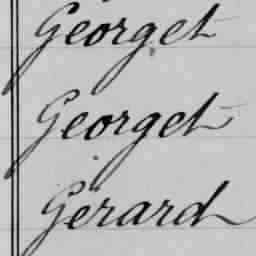 Georget
Georget
Gerard